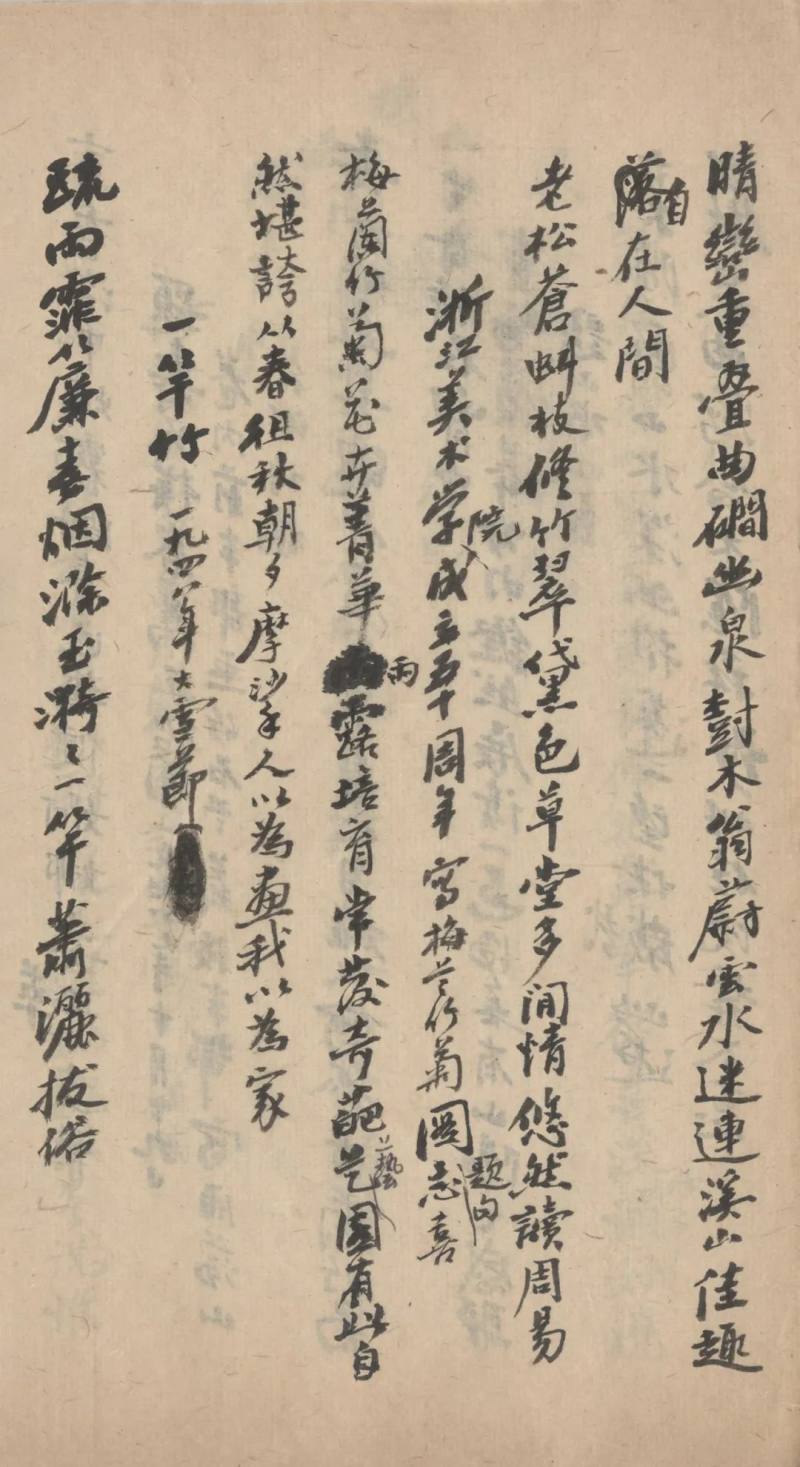 晴巒重疊曲磵幽泉對木蓊蔚雲水迷連溪山佳趣
落自在人間
老松蒼虯枝修竹翠黛色草堂多閒情悠然讀周易
浙江美术学院成立五十周年寫梅兰竹菊圖題句志喜
梅蘭竹菊花卉菁華雨露培育常發奇葩藝園有此自
然堪誇從春徂秋朝夕摩挲人以為畫我以為家
一竿竹 一九四八年大雪節
疏雨霏簾春烟滌玉漪〻一竿蕭灑拔俗